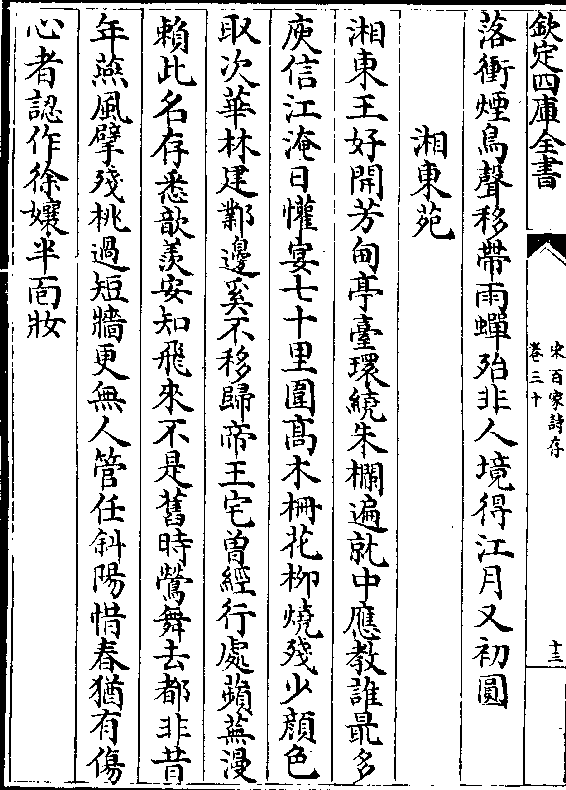 欽定四庫全書
宋百家詩存
卷三十
十三
落衝煙鳥聲移帶雨蟬殆非人境得江月又初圓
湘東苑
湘東王好開芳甸亭臺環繞朱欄遍就中應教誰最多
庾信江淹日懽宴七十里圍髙木柵花柳燒殘少顔色
取次華林建鄴邊奚不移歸帝王宅曽經行處蘋蕪漫
賴此名存悉歆羡安知飛來不是舊時鶯舞去都非昔
年燕風擘殘桃過短牆更無人管任斜陽惜春猶有傷
心者認作徐孃半面妝